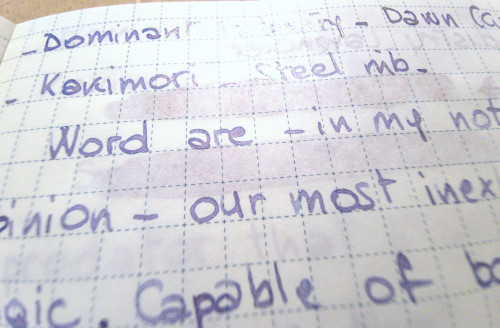 - Dominant - Dawn (c
- Kakimori Steel nib -
Word are - in my not
pinion - our most inex
gic. Capable of bo